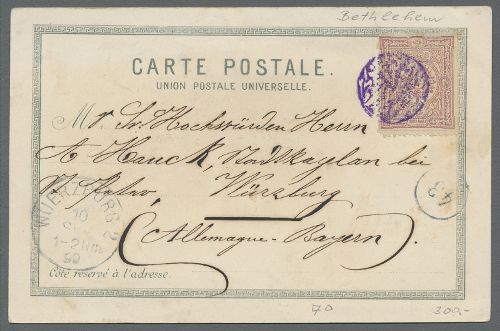 Bethlehem
CARTE POSTALE.
UNION POSTALE UNIVERSELLE.
Sr. Hochwürden Herrn
A Hauck, Stadtkaplan bei
Würzburg
(Allemagne - Bayern)
WUERZBURG 2
10
1-2 Nm
99
43
Côté réservé à l'adresse.
70
300,-